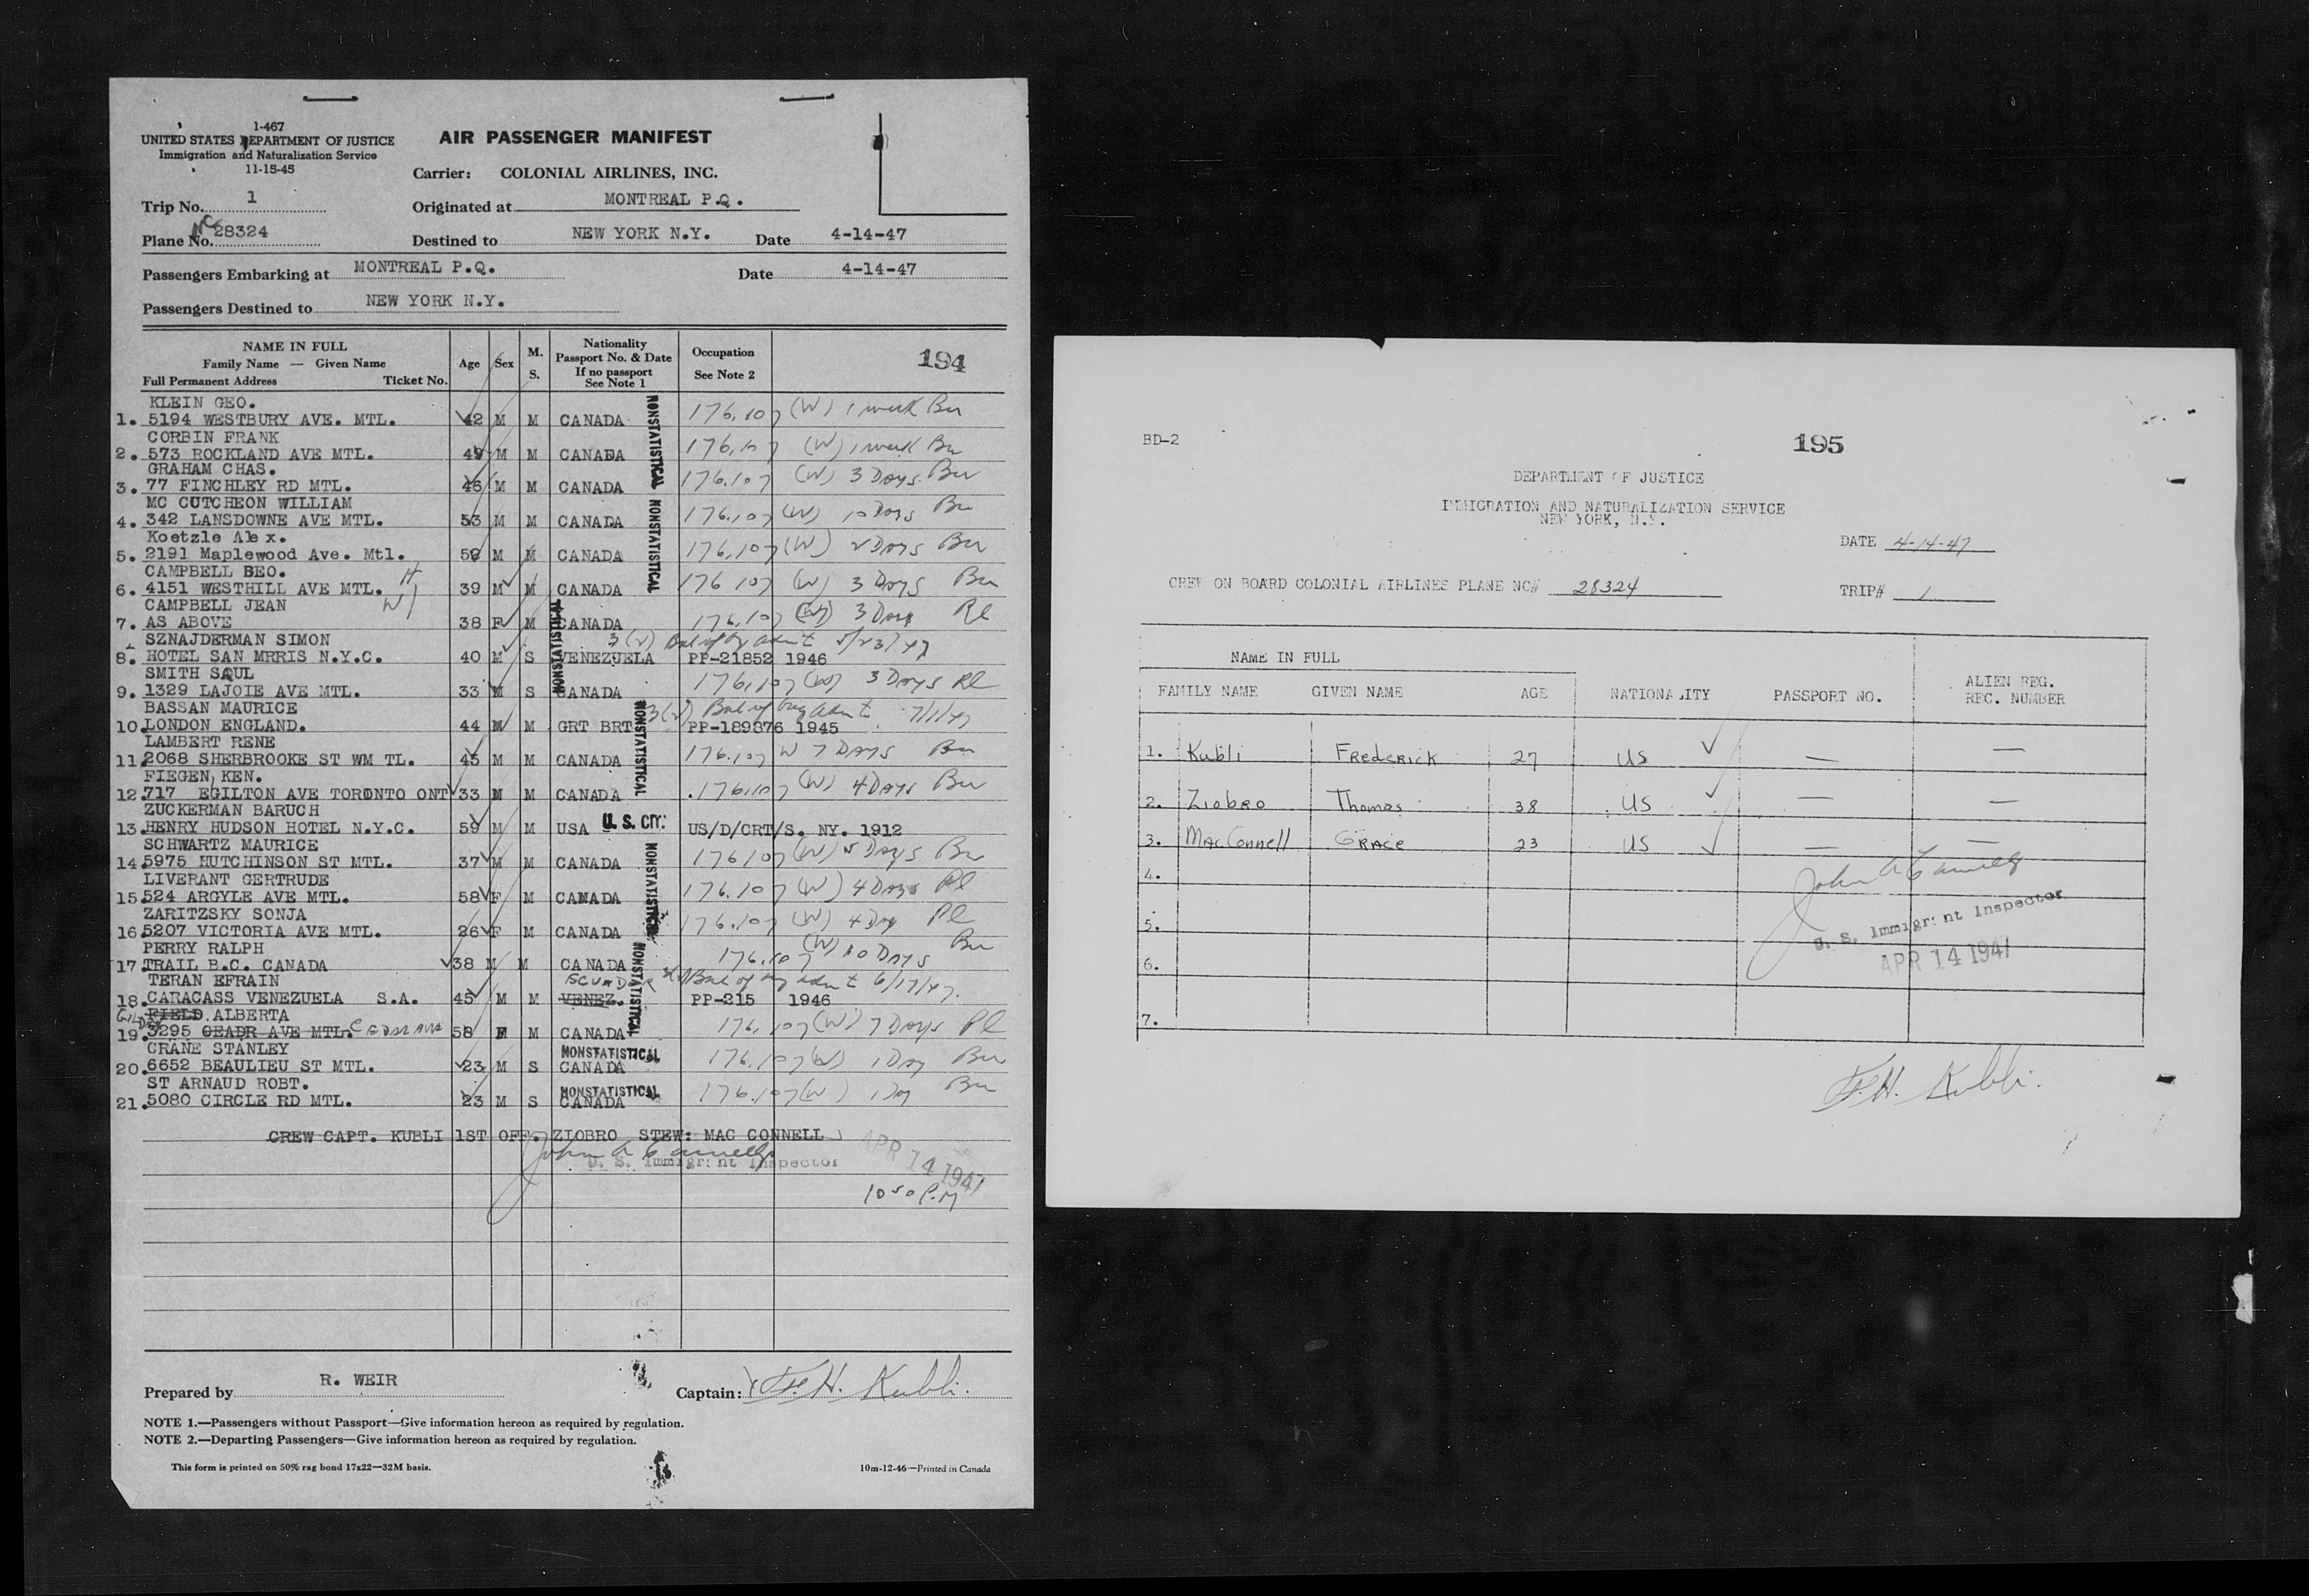 1-467
UNITED STATES DEPARTMENT OF JUSTICE
Immigration and Naturalization Service
11-15-45
AIR PASSENGER MANIFEST
Carrier: COLONIAL AIRLINES, INC.
Trip No. 1
Originated at MONTREAL P.Q.
Plane No. NC 28324
Destined to NEW YORK N.Y. Date 4-14-47
Passengers Embarking at MONTREAL P.Q. Date 4-14-47
Passengers Destined to NEW YORK N.Y.
NAME IN FULL
Family Name — Given Name
Full Permanent Address Ticket No.
Age
Sex
M. S.
Nationality
Passport No. & Date
If no passport
See Note 1
Occupation
See Note 2
194
KLEIN GEO.
1. 5194 WESTBURY AVE. MTL. 42 M M CANADA 176.107 (W) 1 week Bu
CORBIN FRANK
2. 573 ROCKLAND AVE MTL. 49 M M CANADA 176.107 (W) 1 week Bu
GRAHAM CHAS.
3. 77 FINCHLEY RD MTL. 46 M M CANADA 176.107 (W) 3 Days Bu
MC CUTCHEON WILLIAM
4. 342 LANSDOWNE AVE MTL. 53 M M CANADA 176.107 (W) 10 Days Bu
Koetzle Alex.
5. 2191 Maplewood Ave. Mtl. M M CANADA 176.107 (W) 2 Days Bu
CAMPBELL BEO. H
6. 4151 WESTHILL AVE MTL. 39 M M CANADA 176 107 (W) 3 Days Bu
CAMPBELL JEAN W
7. AS ABOVE 38 F M CANADA 176.107 (W) 3 Days Pl
SZNAJDERMAN SIMON 3(2) 5/23/47
8. HOTEL SAN MRRIS N.Y.C. 40 M S VENEZUELA PP-21852 1946
SMITH SAUL
9. 1329 LAJOIE AVE MTL. 33 M S CANADA 176.107 (W) 3 Days Pl
BASSAN MAURICE 3(2) 7/1/47
10. LONDON ENGLAND. 44 M M GRT BRT PP-189876 1945
LAMBERT RENE
11. 2068 SHERBROOKE ST WM TL. 45 M M CANADA 176.107 W 7 Days Bu
FIEGEN, KEN.
12. 717 EGILTON AVE TORONTO ONT 33 M M CANADA 176.107 (W) 4 Days Bu
ZUCKERMAN BARUCH
13. HENRY HUDSON HOTEL N.Y.C. 59 M M USA U. S. CIT. US/D/CRT/S. NY. 1912
SCHWARTZ MAURICE
14. 5975 HUTCHINSON ST MTL. 37 M M CANADA 176 107 (W) 5 Days Bu
LIVERANT GERTRUDE
15. 524 ARGYLE AVE MTL. 58 F M CANADA 176.107 (W) 4 Days Pl
ZARITZSKY SONJA
16. 5207 VICTORIA AVE MTL. 26 F M CANADA 176.107 (W) 4 Day Pl
PERRY RALPH
17. TRAIL B.C. CANADA 38 M M CANADA 176.107 (W) 10 Days Bu
TERAN EFRAIN 6/17/47.
18. CARACASS VENEZUELA S.A. 45 M M VENEZ. PP-215 1946
FIELD ALBERTA
19. 3295 CEADR AVE MTL. CEDAR AVE 58 F M CANADA 176.107 (W) 7 Days Pl
CRANE STANLEY
20. 6652 BEAULIEU ST MTL. 23 M S CANADA 176.107 (W) 1 Day Bu
ST ARNAUD ROBT.
21. 5080 CIRCLE RD MTL. 23 M S CANADA 176.107 (W) 1 Day Bu
NONSTATISTICAL
NONSTATISTICAL
NONSTATISTICAL
NONSTATISTICAL
NONSTATISTICAL
NONSTATISTICAL
NONSTATISTICAL
NONSTATISTICAL
CREW CAPT. KUBLI 1ST OFF. ZIOBRO STEW: MAC CONNELL
U. S. Immigrant Inspector APR 14 1947
10 50 P.M
Prepared by R. WEIR
Captain: F. H. Kubli.
NOTE 1.—Passengers without Passport—Give information hereon as required by regulation.
NOTE 2.—Departing Passengers—Give information hereon as required by regulation.
This form is printed on 50% rag bond 17x22—32M basis.
10m-12-46—Printed in Canada
BD-2
195
DEPARTMENT OF JUSTICE
IMMIGRATION AND NATURALIZATION SERVICE
NEW YORK, N.Y.
DATE 4-14-47
CREW ON BOARD COLONIAL AIRLINES PLANE NC# 28324
TRIP# 1
NAME IN FULL
FAMILY NAME GIVEN NAME AGE NATIONALITY PASSPORT NO. ALIEN REG. REC. NUMBER
1. Kubli Frederick 27 US — —
2. Ziobro Thomas 38 US — —
3. MacConnell Grace 23 US — —
4.
5.
6.
7.
U. S. Immigrant Inspector
APR 14 1947
F. H. Kubli.